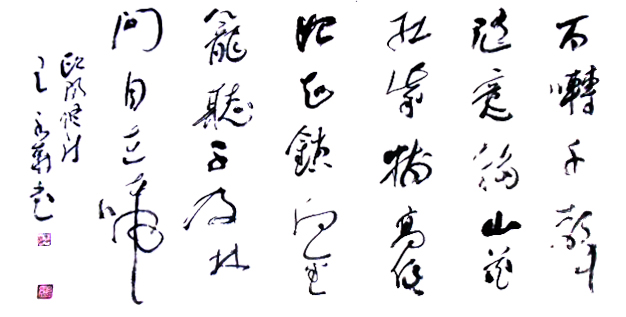 百囀千聲
随意移山花
紅紫樹高低
始知鎖向金
籠聽不及林
間自在啼
歐陽修詩
王永書